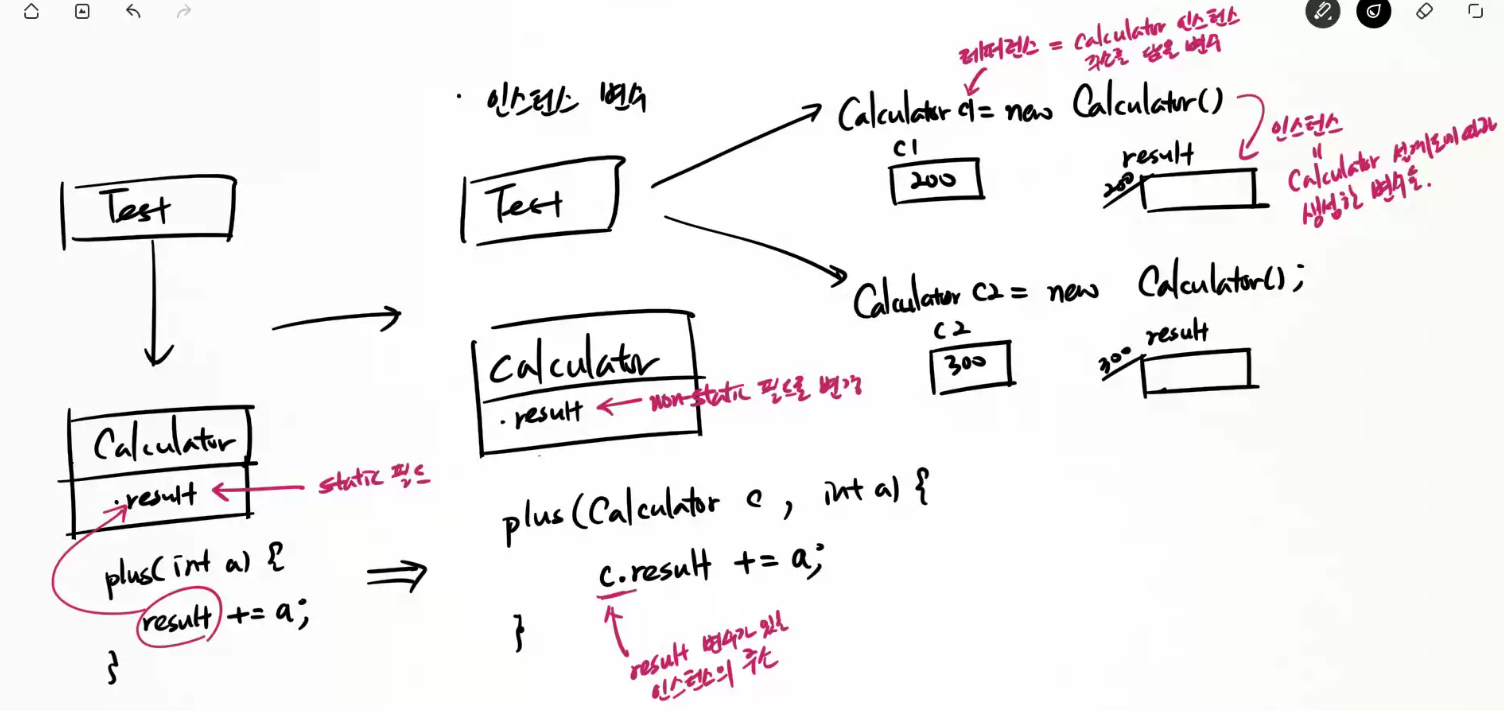 · 인스턴스 변수
Test
Calculator
· result
static 필드
plus(int a) {
result += a;
}
Test
Calculator
· result
non-static 필드로 변경
plus(Calculator c, int a) {
c.result += a;
}
result 변수가 있는
인스턴스의 주소
레퍼런스 = Calculator 인스턴스
주소를 담은 변수
Calculator c1 = new Calculator()
C1
200
result
200
인스턴스
=
Calculator 설계도에 따라
생성한 변수들.
Calculator C2 = new Calculator();
C2
300
result
300